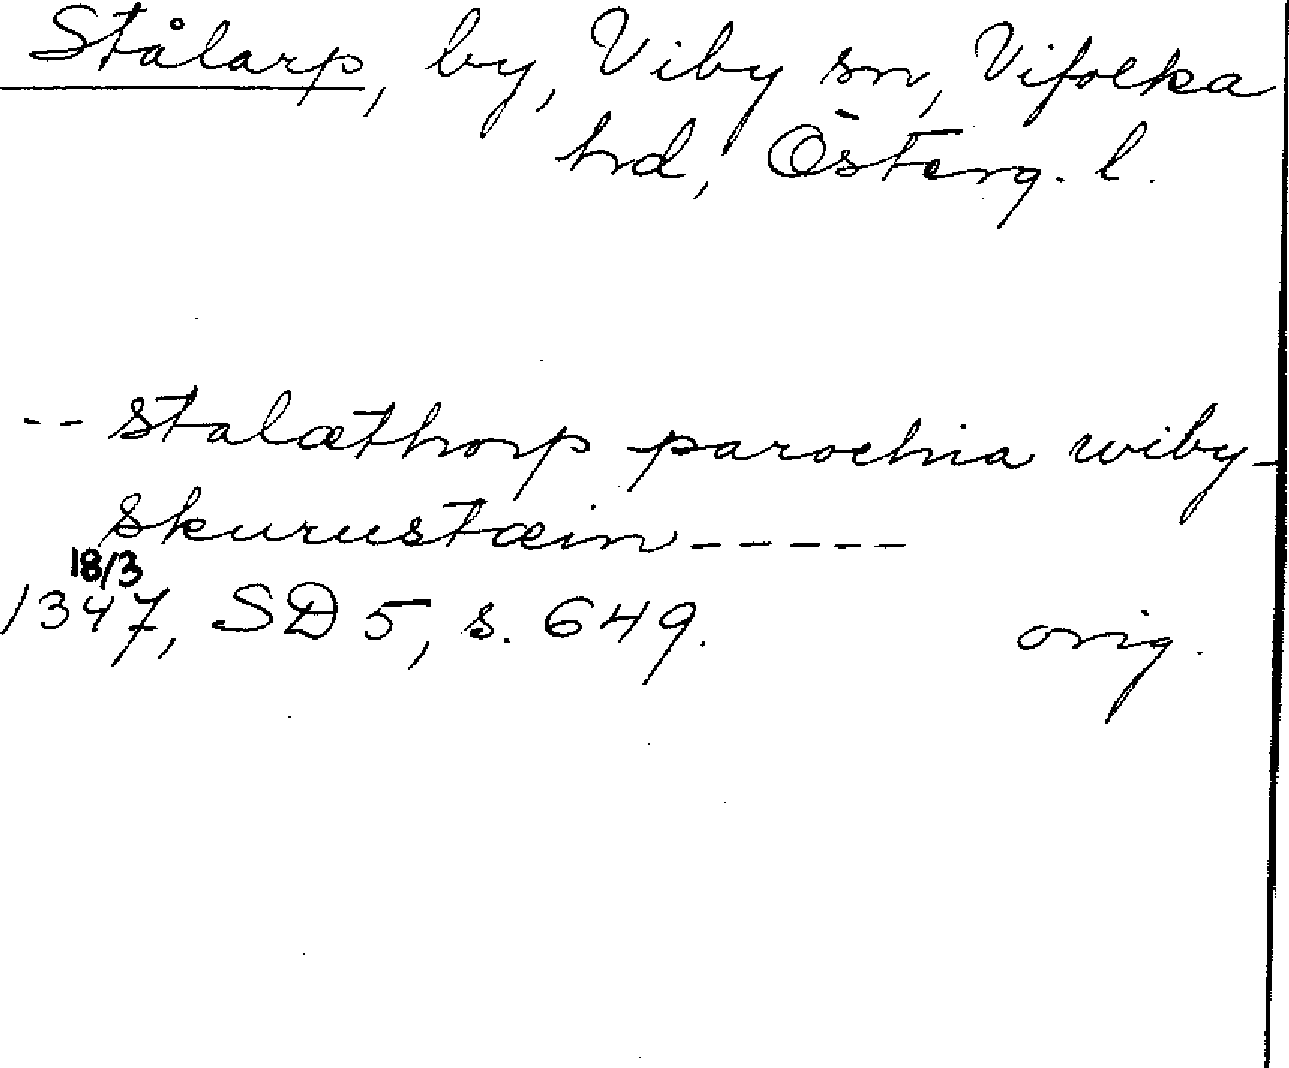 Stålarp, by, Viby sn, Vifolka
hd, Österg. l.
-- stalæthorp parochia wiby-
skurustæin -----
18/3
1347, SD 5, s. 649. orig.